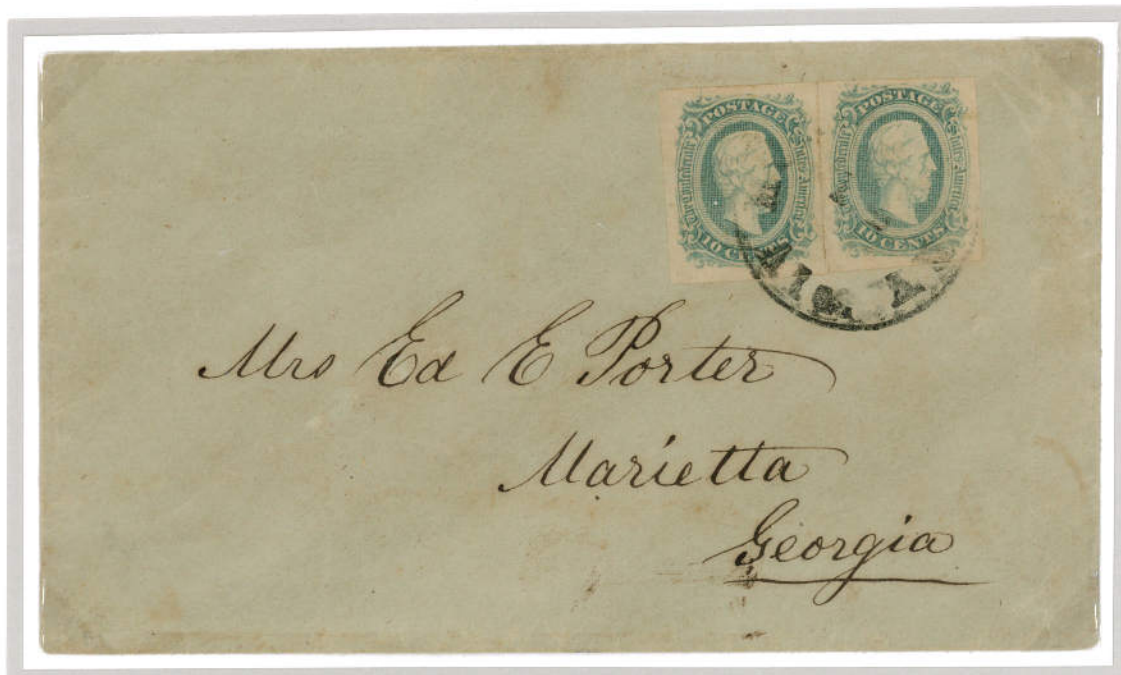 POSTAGE
The Confederate States America
10 CENTS
POSTAGE
The Confederate States America
10 CENTS
Mrs Ed E Porter
Marietta
Georgia